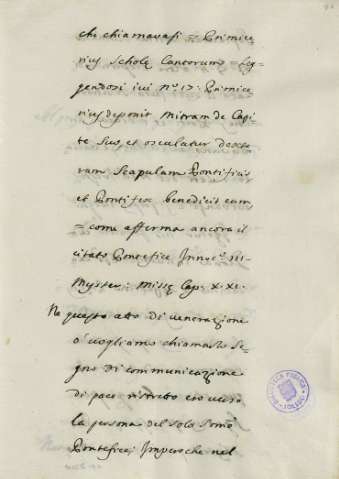 che chiamavasi = Primice
rius Scholę Cantorum Leg=
gendosi ivi nº 17: Primice
rius deponit Mitram de Capi=
te suo, et osculatur dexte
ram Scapulam Pontificis
et Pontifex benedicit eum
= come afferma ancora il
citato Pontefice Innoc: III
Myster: Missę Cap: X. XI.
Ne questo atto di venerazione
o' vogliamo chiamarlo Se=
gno di communicazione
di pace ristretto era verso
la persona del solo Somo
Pontefice; Imperoche nel
BIBLIOTECA PUBLICA
TOLEDO